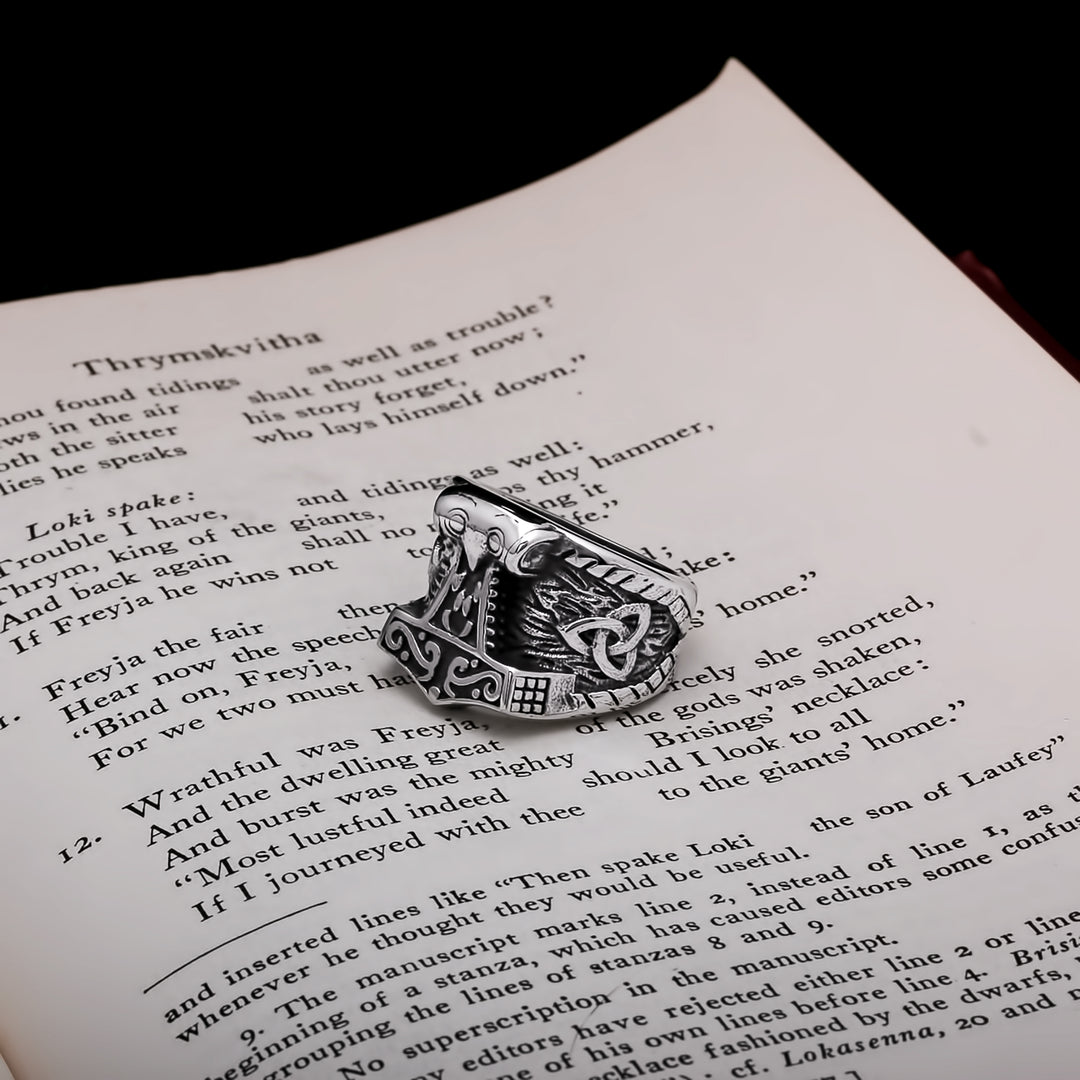 Thrymskvitha
hou found tidings as well as trouble?
ws in the air shalt thou utter now;
oth the sitter his story forget,
lies he speaks who lays himself down.”
Loki spake:
Trouble I have, and tidings as well:
Thrym, king of the giants, ps thy hammer,
And back again shall no ng it
If Freyja he wins not to fe.”
Freyja the fair then
Hear now the speech ke:
“Bind on, Freyja,
For we two must ha s’ home.”
12. Wrathful was Freyja, rcely she snorted,
And the dwelling great of the gods was shaken,
And burst was the mighty Brisings’ necklace:
“Most lustful indeed should I look to all
If I journeyed with thee to the giants’ home.”
and inserted lines like “Then spake Loki the son of Laufey”
whenever he thought they would be useful.
9. The manuscript marks line 2, instead of line 1, as th
beginning of a stanza, which has caused editors some confus
grouping the lines of stanzas 8 and 9.
No superscription in the manuscript.
ny editors have rejected either line 2 or line
ne of his own lines before line 4. Brisi
cklace fashioned by the dwarfs,
cf. Lokasenna, 20 and